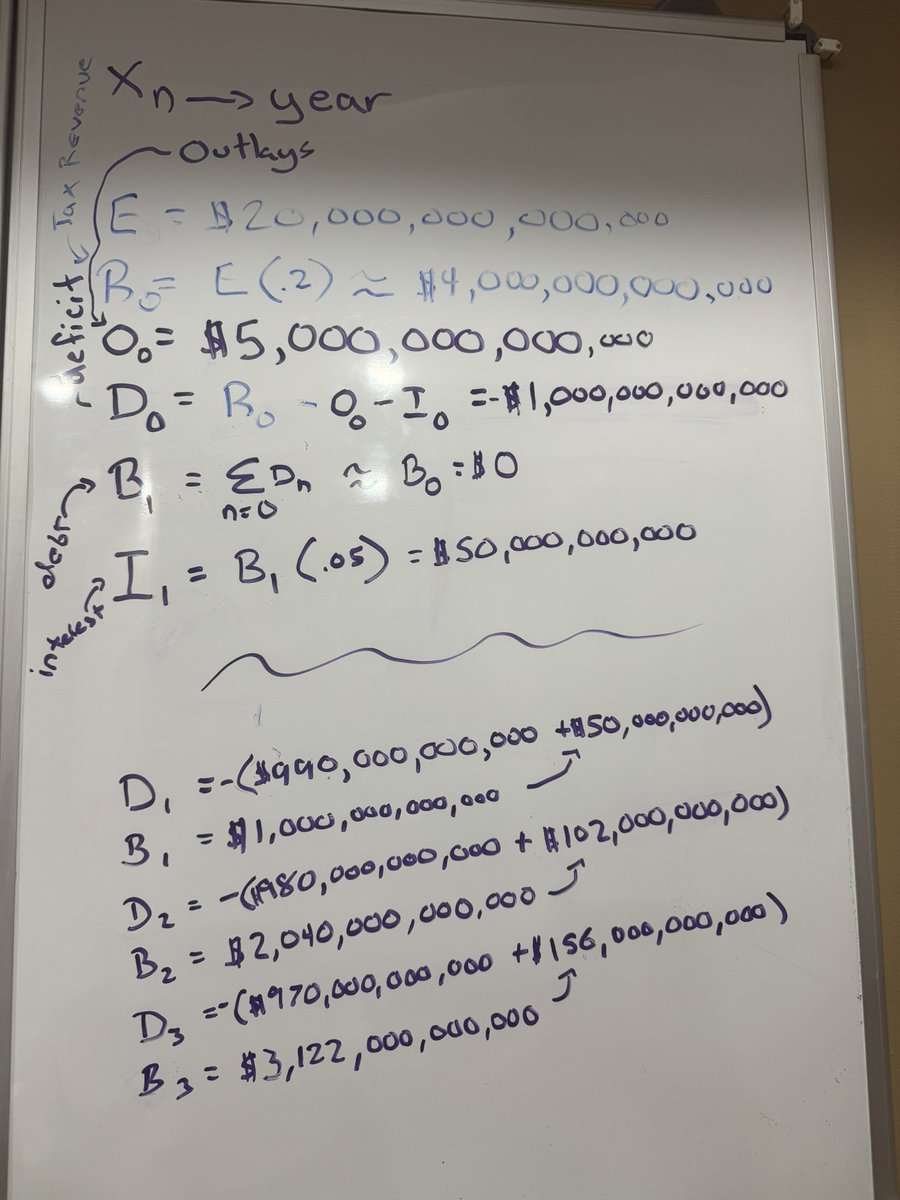 Xn → year
Outlays
Tax Revenue
E = $20,000,000,000,000
R₀ = E(.2) ≈ $4,000,000,000,000
O₀ = $5,000,000,000,000
deficit
D₀ = R₀ - O₀ - I₀ = -$1,000,000,000,000
debt
B₁ = Σ Dn ≈ B₀ = $0
n=0
interest
I₁ = B₁(.05) = $50,000,000,000
D₁ = -($990,000,000,000 + $50,000,000,000)
B₁ = $1,000,000,000,000
D₂ = -($980,000,000,000 + $102,000,000,000)
B₂ = $2,040,000,000,000
D₃ = -($970,000,000,000 + $156,000,000,000)
B₃ = $3,122,000,000,000